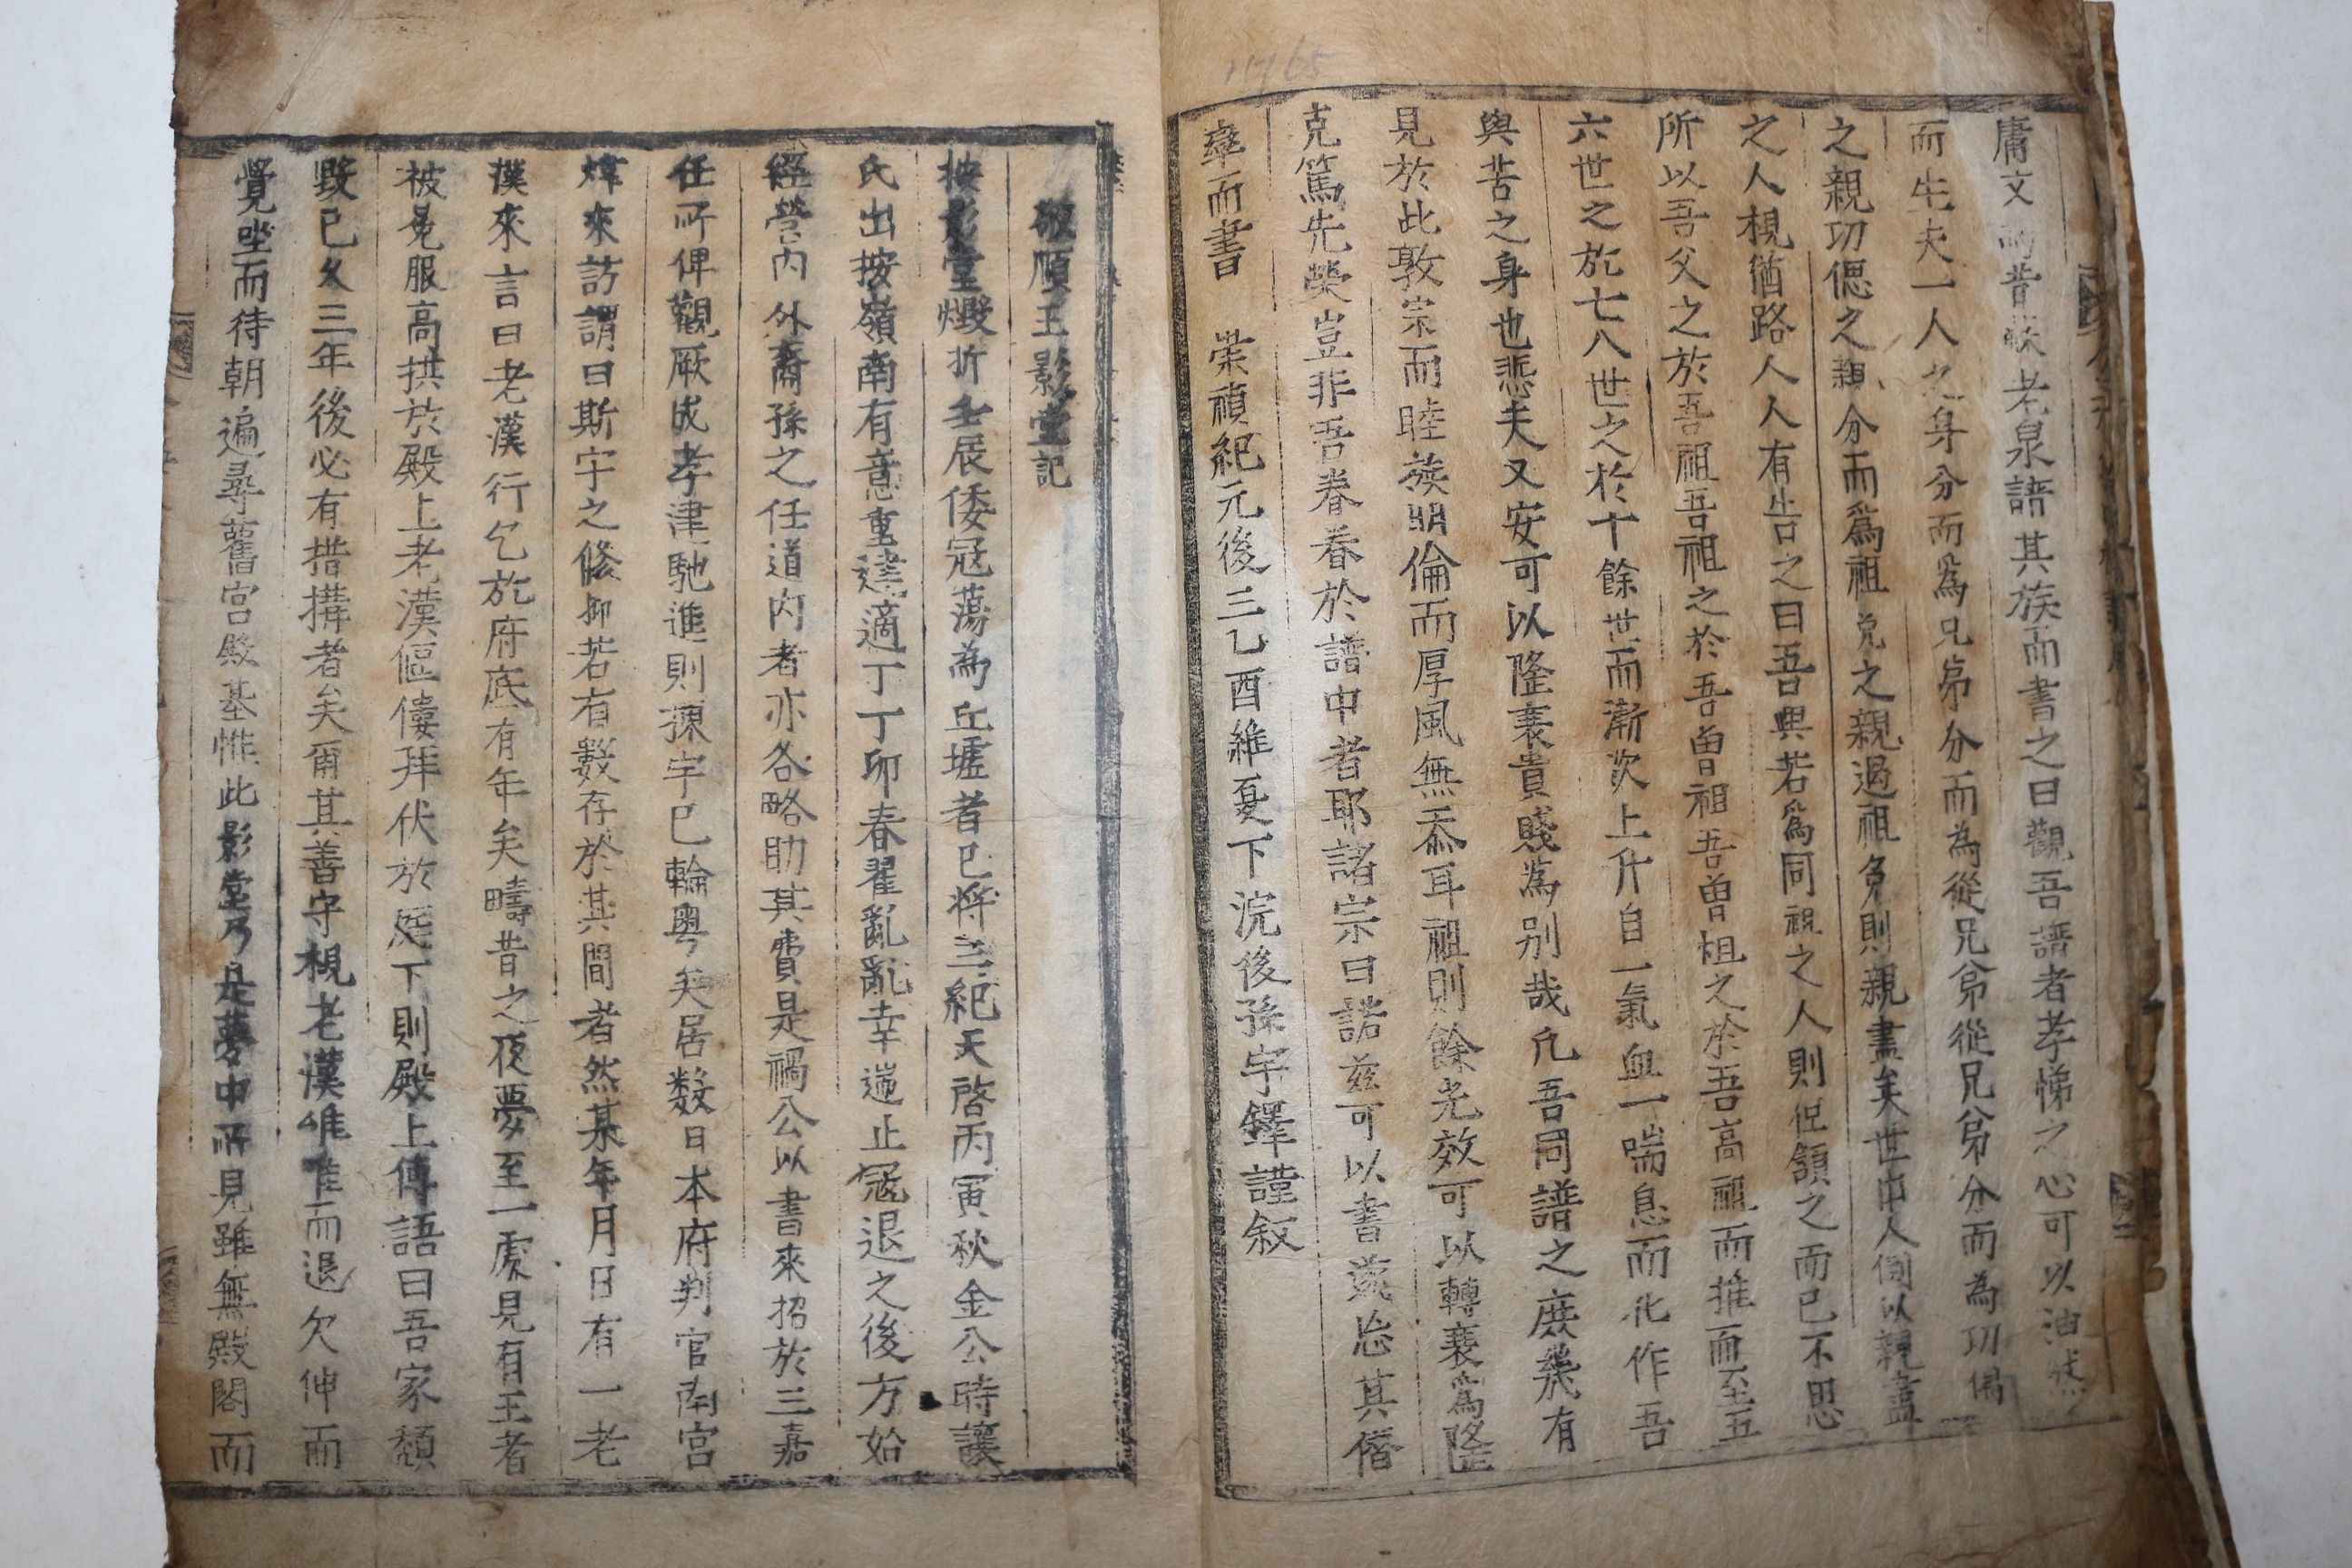 庸文而昔蘇老泉語其族而書之曰觀吾譜者孝悌之心可以油然
而生夫一人之身分而爲兄弟分而為從兄弟從兄弟分而為功緦
之親功緦之親分而爲祖免之親過祖免則親盡矣世中人例以親盡
之人視猶路人人有告之曰吾與若爲同祖之人則但頷之而已不思
所以吾父之於吾祖吾祖之於吾曾祖吾曾祖之於吾高祖而推而至五
六世之於七八世之於十餘世世而漸次上升自一氣血一喘息而化作吾
與若之身也悲夫又安可以隆衰貴賤爲別哉凡吾同譜之庶幾有
見於此敦宗而睦族明倫而厚風無忝耳祖則餘光效可以轉衰爲隆
克篤先榮豈非吾眷眷於譜中者耶諸宗曰諾茲可以書遂忘其僭
率而書 崇禎紀元後三乙酉維夏下浣後孫宇鐸謹叙
敬順王影堂記
按影堂燬折壬辰倭冦蕩為丘墟者已將三紀天啓丙寅秋金公時讓
氏出按嶺南有意重建適丁丁卯春翟亂亂幸遄止冦退之後方始
經營内外裔孫之任道内者亦各略助其費是禍公以書來招於三嘉
任所俾觀厥成孝津馳進則棟宇已輪奐矣居数日本府判官南宮
煒來訪謂曰斯宇之修抑若有數存於其間者然某年月日有一老
漢來言曰老漢行乞於府底有年矣疇昔之夜夢至一處見有王者
被冕服高拱於殿上老漢傴僂拜伏於庭下則殿上傳語曰吾家頹
毀已久三年後必有措搆者矣爾其善守視老漢唯唯而退欠伸而
覺坐而待朝遍尋舊宮殿基惟此影堂乃是夢中所見雖無殿閣而